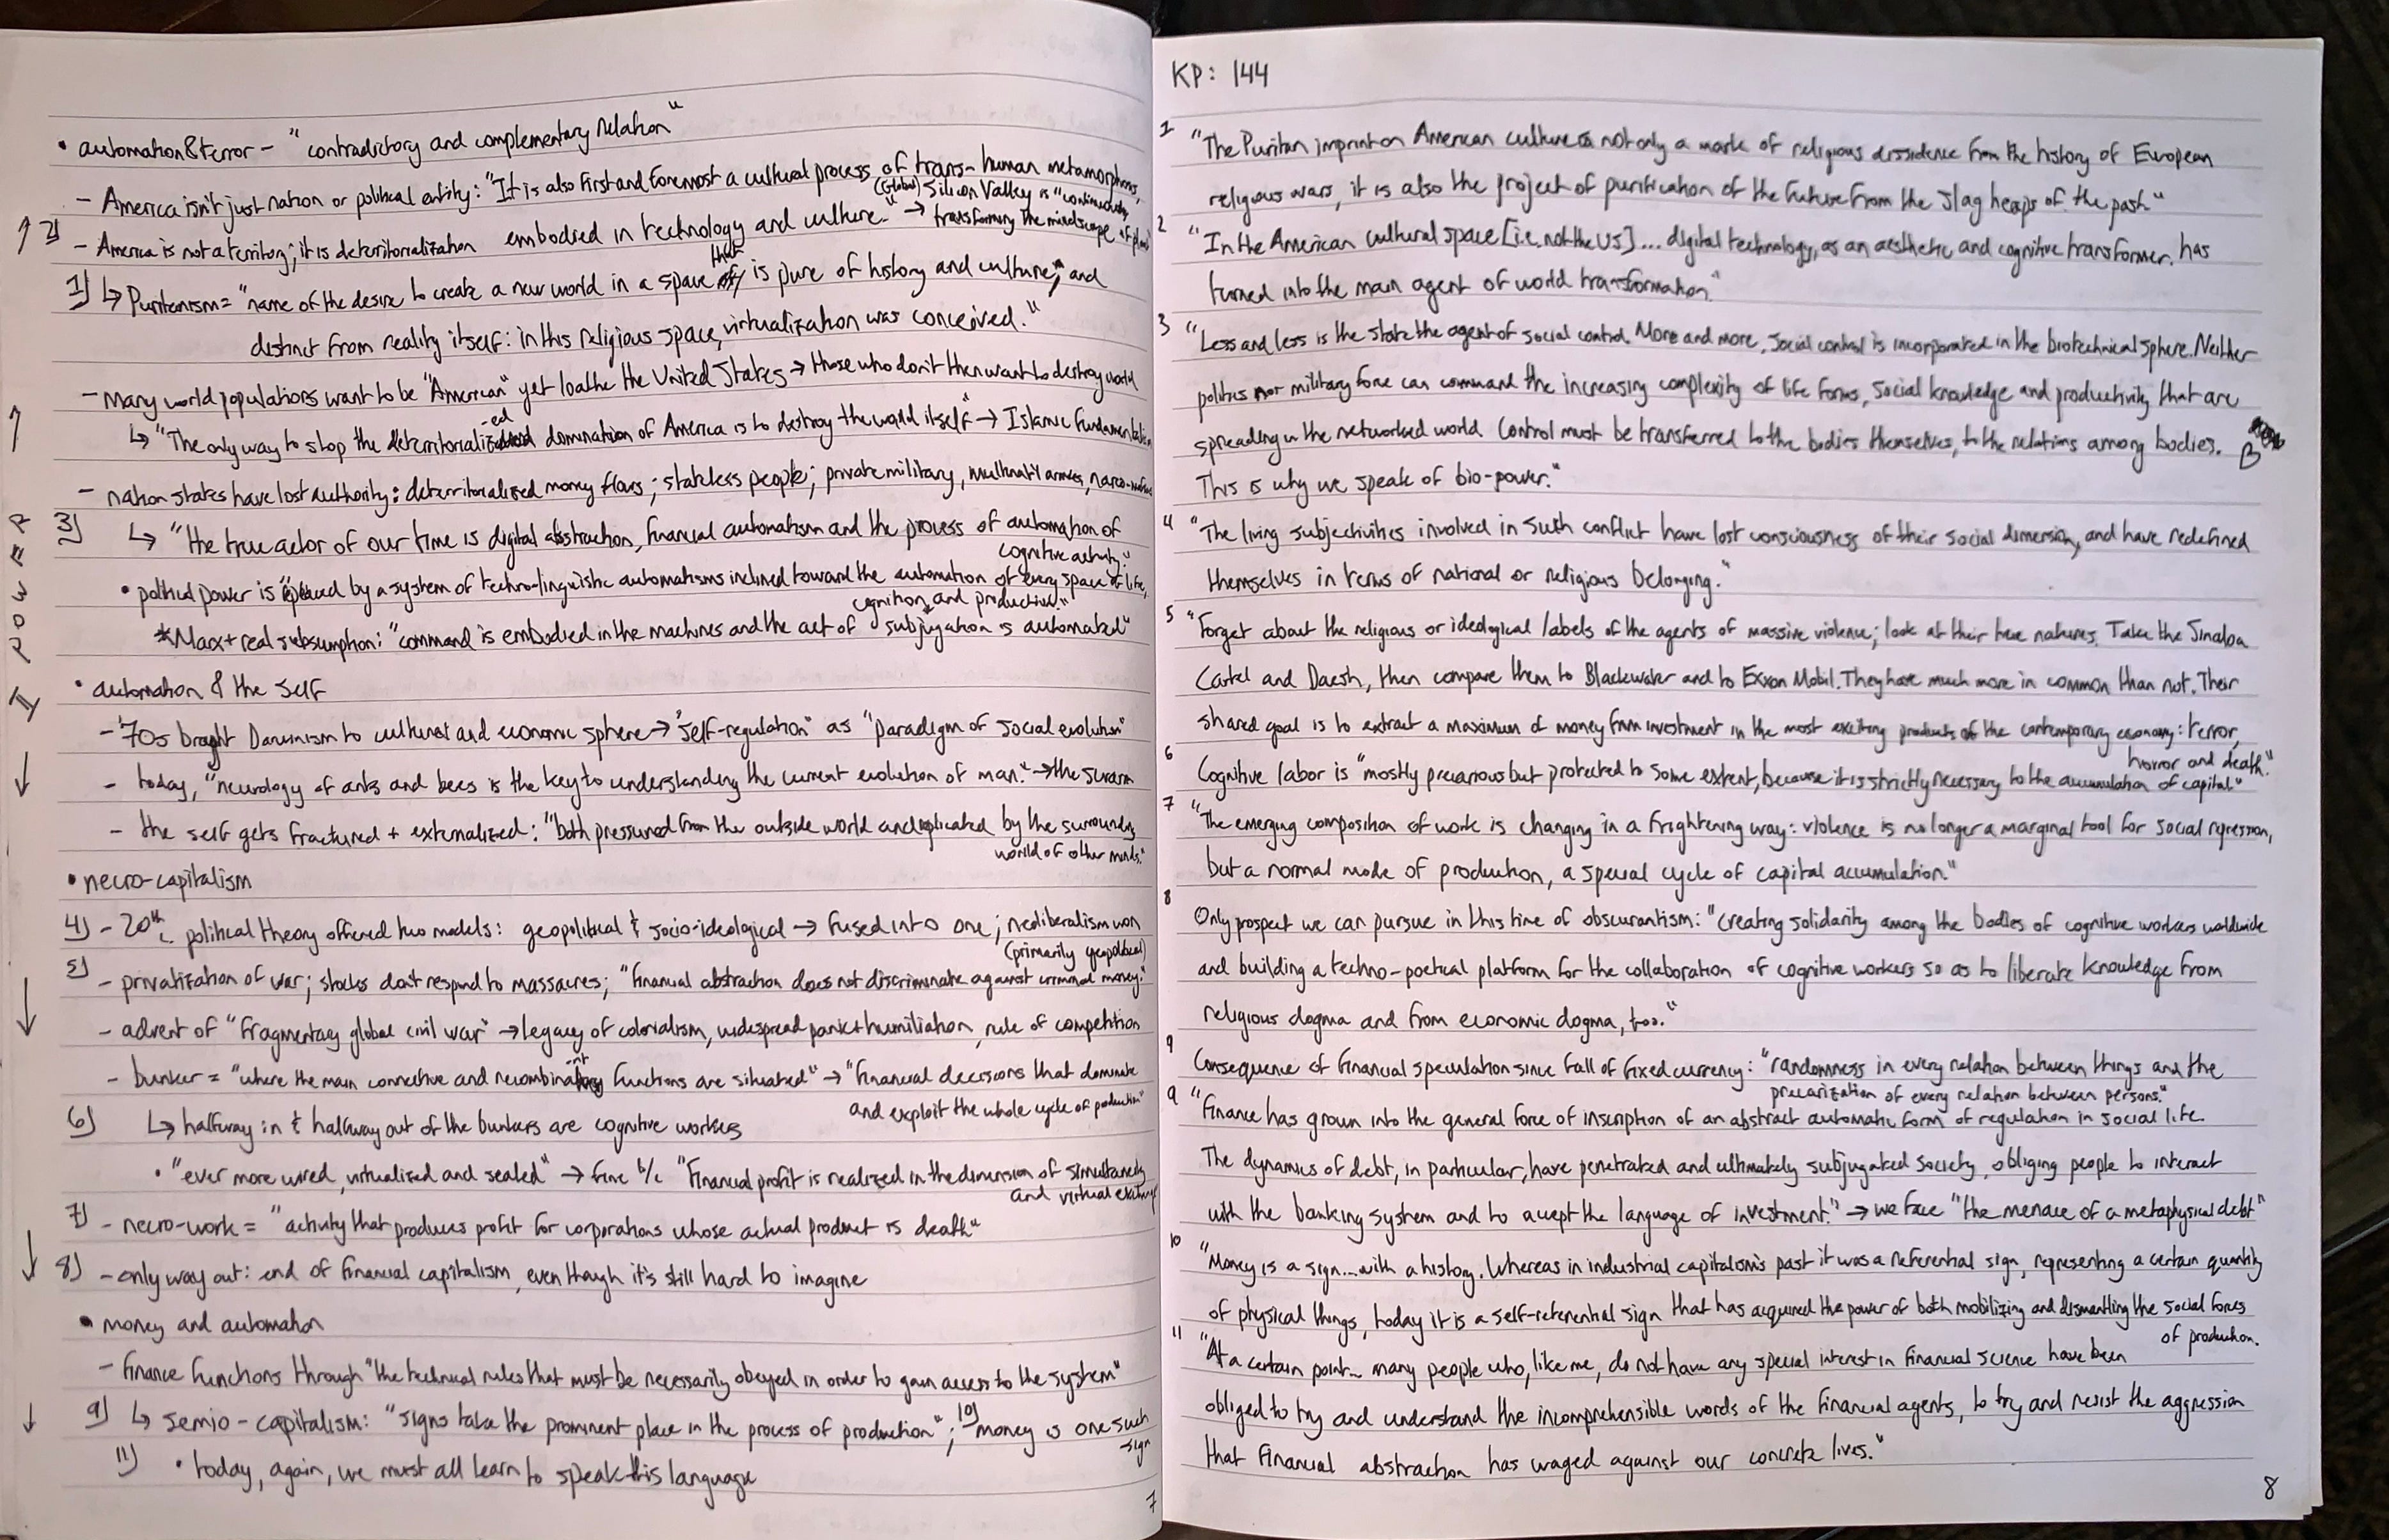 • automation & terror – "contradictory and complementary relation"
– America isn't just nation or political entity: "It is also first and foremost a cultural process of trans-human metamorphosis,
2) – America is not a territory; it is deterritorialization embodied in technology and culture." → (Global) Silicon Valley is "continuously transforming the mindscape of
1) ↳ Puritanism = "name of the desire to create a new world in a space that is pure of history and culture, and
distinct from reality itself: in this religious space, virtualization was conceived."
– Many world populations want to be "American" yet loathe the United States → those who don't then want to destroy world
↳ "The only way to stop the deterritorialized domination of America is to destroy the world itself" → Islamic fundamentalism
– nation states have lost authority: deterritorialized money flows; stateless people; private military, multinat'l armies, narco-mafias
3) ↳ "the true actor of our time is digital abstraction, financial automatism and the process of automation of
cognitive activity."
• political power is "replaced by a system of techno-linguistic automatisms inclined toward the automation of every space of life,
cognition and production."
*Marx + real subsumption: "command is embodied in the machines and the act of subjugation is automated"
POWER II
• automation & the self
– '70s brought Darwinism to cultural and economic sphere → "self-regulation" as "paradigm of social evolution"
– today, "neurology of ants and bees is the key to understanding the current evolution of man." → the swarm
– the self gets fractured + externalized: "both pressured from the outside world and replicated by the surrounding
world of other minds."
• necro-capitalism
4) – 20th c. political theory offered two models: geopolitical & socio-ideological → fused into one; neoliberalism won
(primarily geopolitical)
5) – privatization of war; stocks don't respond to massacres; "financial abstraction does not discriminate against criminal money."
– advent of "fragmentary global civil war" → legacy of colonialism, widespread panic + humiliation, rule of competition
– bunker = "where the main connective and recombinant functions are situated" → "financial decisions that dominate
and exploit the whole cycle of production"
6) ↳ halfway in & halfway out of the bunkers are cognitive workers
• "ever more wired, virtualized and sealed" → fine b/c "Financial profit is realized in the dimension of simultaneity
and virtual exchange
7) – necro-work = "activity that produces profit for corporations whose actual product is death"
8) – only way out: end of financial capitalism, even though it's still hard to imagine
• money and automation
– finance functions through "the technical rules that must be necessarily obeyed in order to gain access to the system"
9) ↳ semio-capitalism: "signs take the prominent place in the process of production"; 10) money is one such
sign
11) • today, again, we must all learn to speak this language
7
KP: 144
1 "The Puritan imprint on American culture is not only a mark of religious dissidence from the history of European
religious wars, it is also the project of purification of the future from the slag heaps of the past."
2 "In the American cultural space [i.e. not the US] ... digital technology, as an aesthetic and cognitive transformer, has
turned into the main agent of world transformation."
3 "Less and less is the state the agent of social control. More and more, social control is incorporated in the biotechnical sphere. Neither
politics nor military force can command the increasing complexity of life forms, social knowledge and productivity that are
spreading in the networked world. Control must be transferred to the bodies themselves, to the relations among bodies. B
This is why we speak of bio-power."
4 "The living subjectivities involved in such conflict have lost consciousness of their social dimension, and have redefined
themselves in terms of national or religious belonging."
5 "Forget about the religious or ideological labels of the agents of massive violence; look at their true natures. Take the Sinaloa
Cartel and Daesh, then compare them to Blackwater and to Exxon Mobil. They have much more in common than not. Their
shared goal is to extract a maximum of money from investment in the most exciting products of the contemporary economy: terror,
horror and death."
6 Cognitive labor is "mostly precarious but protected to some extent, because it is strictly necessary to the accumulation of capital."
7 "The emerging composition of work is changing in a frightening way: violence is no longer a marginal tool for social repression,
but a normal mode of production, a special cycle of capital accumulation."
8 Only prospect we can pursue in this time of obscurantism: "creating solidarity among the bodies of cognitive workers worldwide
and building a techno-poetical platform for the collaboration of cognitive workers so as to liberate knowledge from
religious dogma and from economic dogma, too."
9 Consequence of financial speculation since fall of fixed currency: "randomness in every relation between things and the
precarization of every relation between persons."
9 "Finance has grown into the general force of inscription of an abstract automatic form of regulation in social life.
The dynamics of debt, in particular, have penetrated and ultimately subjugated society, obliging people to interact
with the banking system and to accept the language of investment." → we face "the menace of a metaphysical debt"
10 "Money is a sign... with a history. Whereas in industrial capitalism's past it was a referential sign, representing a certain quantity
of physical things, today it is a self-referential sign that has acquired the power of both mobilizing and dismantling the social forces
of production.
11 "At a certain point... many people who, like me, do not have any special interest in financial science have been
obliged to try and understand the incomprehensible words of the financial agents, to try and resist the aggression
that financial abstraction has waged against our concrete lives."
8